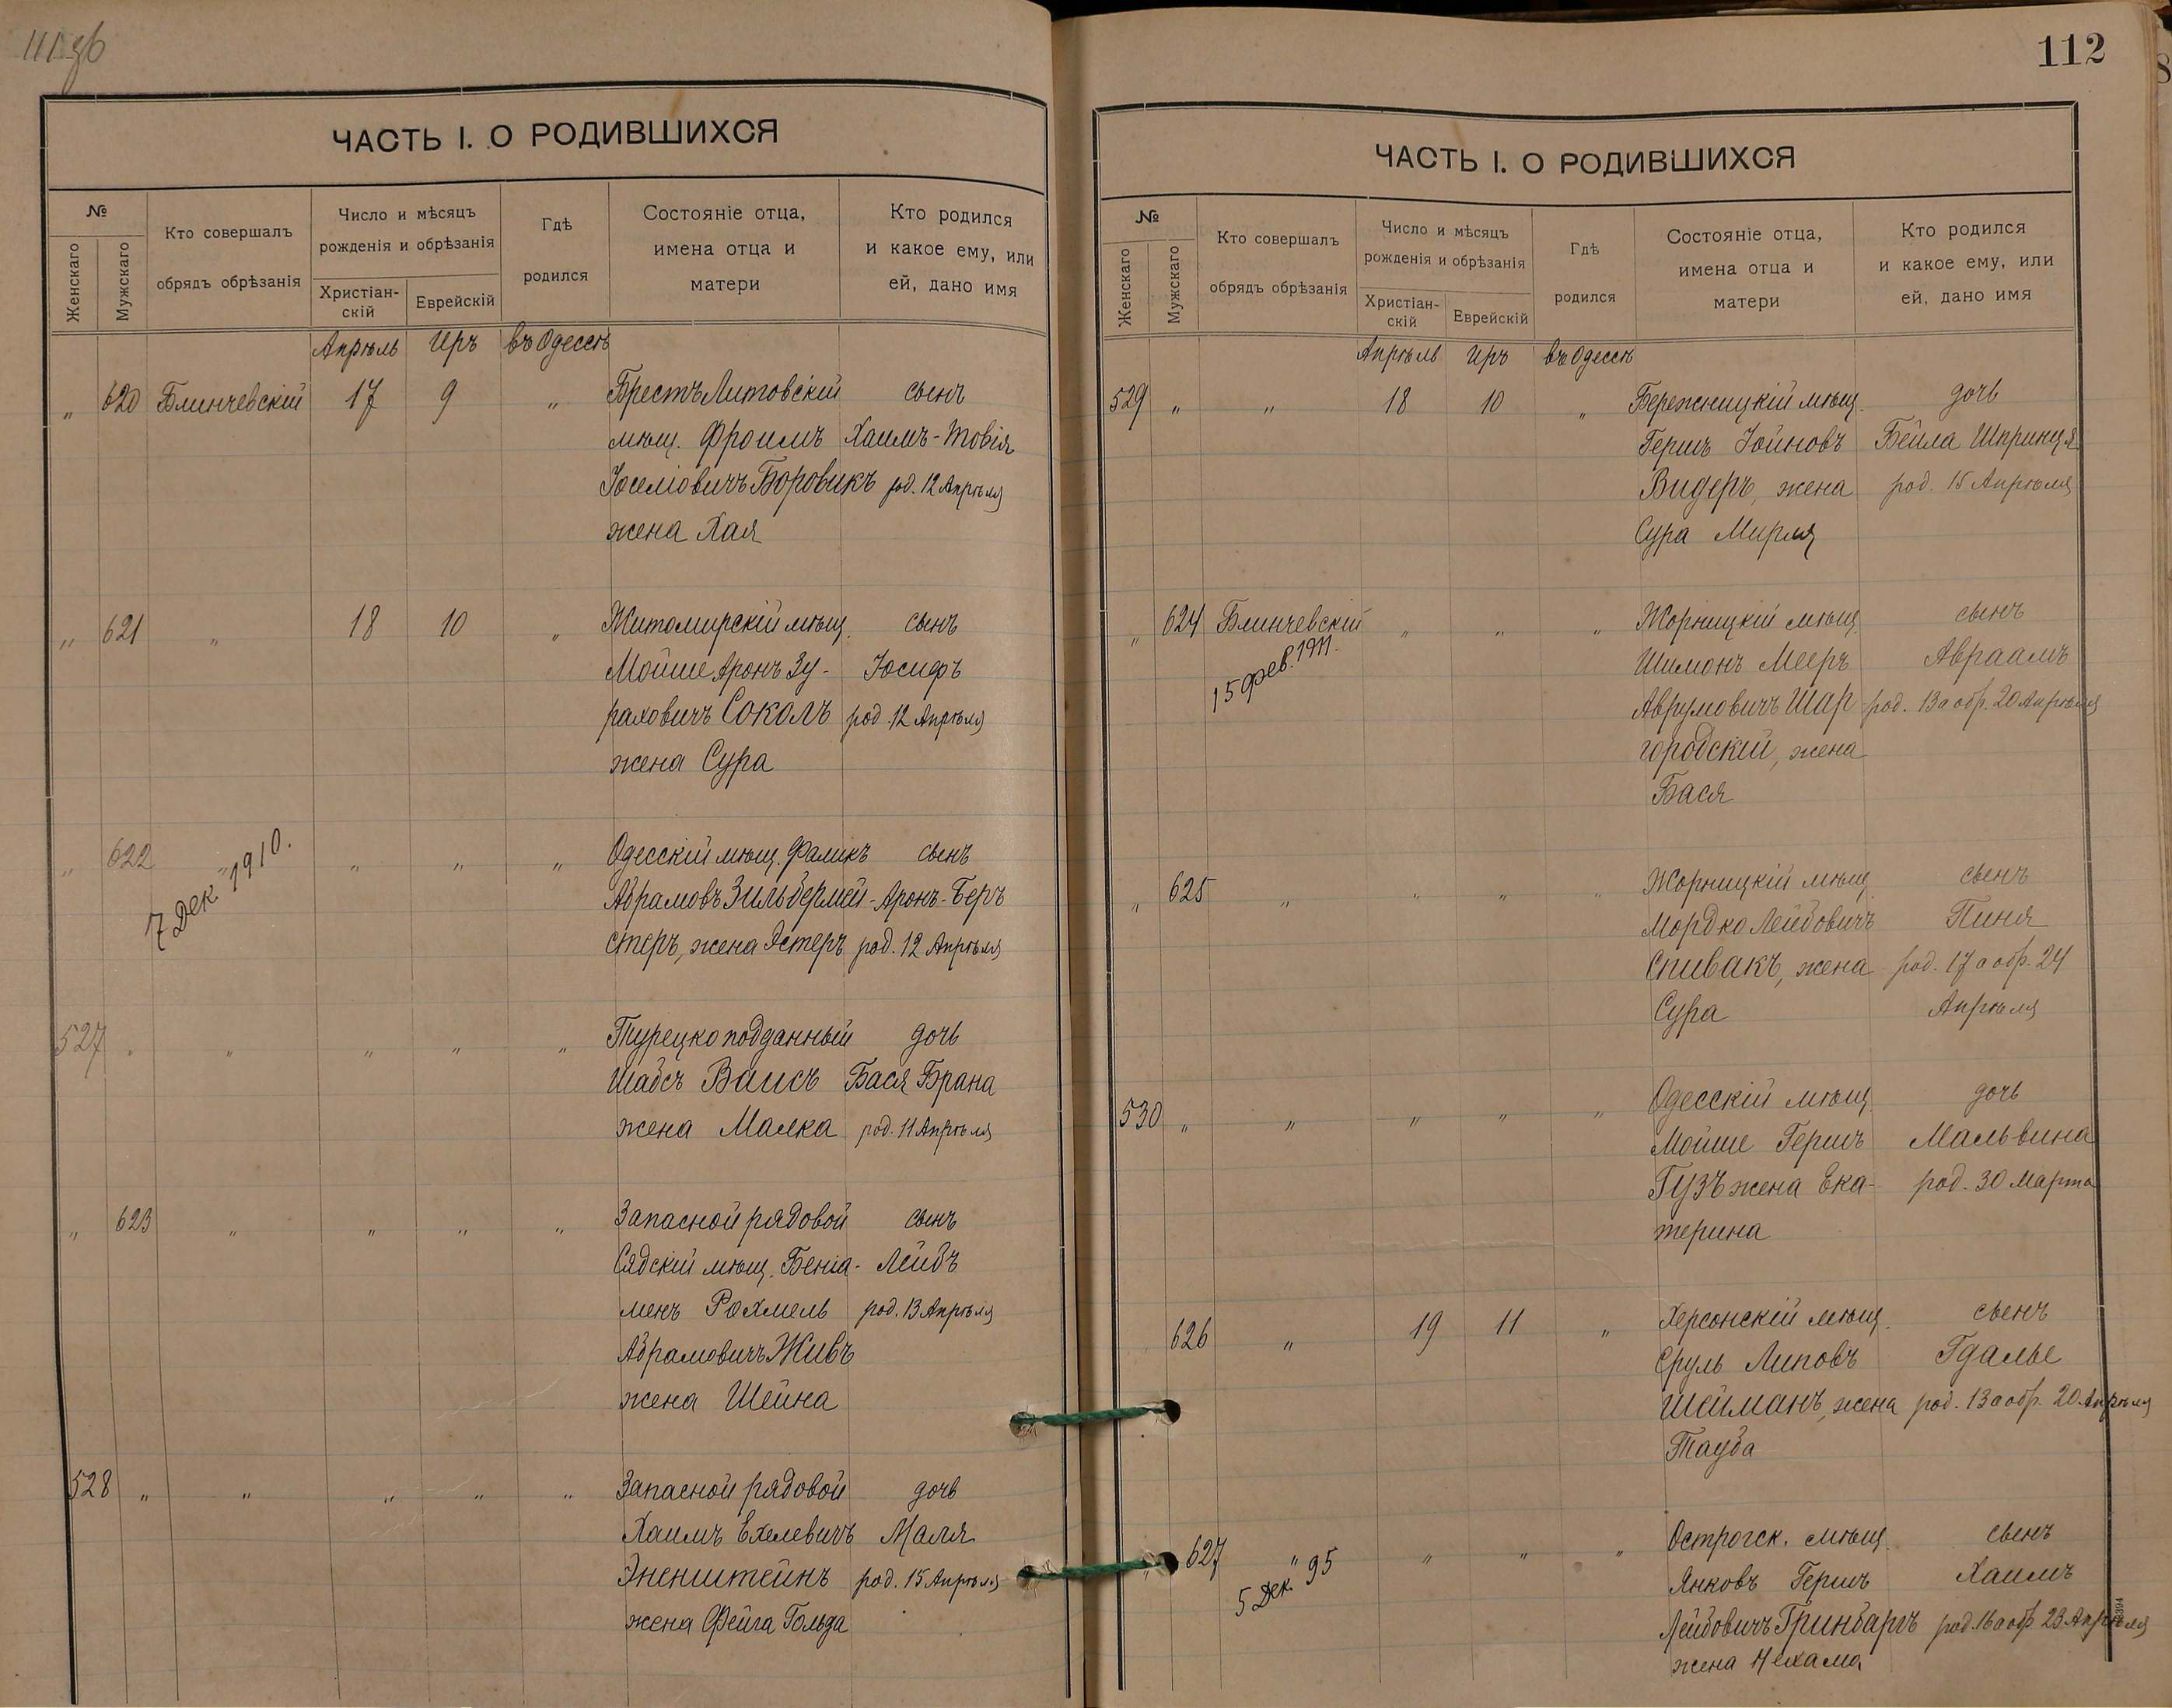 111 об
ЧАСТЬ I. О РОДИВШИХСЯ
№
Женскаго
Мужскаго
Кто совершалъ
обрядъ обрѣзанія
Число и мѣсяцъ
рожденія и обрѣзанія
Христіан-
скій
Еврейскій
Гдѣ
родился
Состояніе отца,
имена отца и
матери
Кто родился
и какое ему, или
ей, дано имя
Апрѣль Иръ въ Одессѣ
" 620 Блинчевскій 17 9 " Брестъ Литовскій сынъ
мѣщ. Фроимъ Хаимъ-Товія
Іоселіовичъ Боровикъ род. 12 Апрѣля
жена Хая
" 621 " 18 10 " Житомирскій мѣщ. сынъ
Мойше Аронъ Зу- Іосифъ
раховичъ Соколъ род. 12 Апрѣля
жена Сура
" 622 " " " " Одесскій мѣщ. Фаликъ сынъ
7 Дек. 1910.
Абрамовъ Зильбермей- Аронъ-Беръ
стеръ, жена Эстеръ род. 12 Апрѣля
527 " " " " " Турецко подданный дочь
Шабсъ Вайсъ Бася Брана
жена Малка род. 11 Апрѣля
" 623 " " " " Запасной рядовой сынъ
Сядскій мѣщ. Беніа- Лейбъ
менъ Рахмель род. 13 Апрѣля
Абрамовичъ Живъ
жена Шейна
528 " " " " " Запасной рядовой дочь
Хаимъ Ехелевичъ Маля
Эненштейнъ род. 15 Апрѣля
жена Фейга Гольда
112
ЧАСТЬ I. О РОДИВШИХСЯ
№
Женскаго
Мужскаго
Кто совершалъ
обрядъ обрѣзанія
Число и мѣсяцъ
рожденія и обрѣзанія
Христіан-
скій
Еврейскій
Гдѣ
родился
Состояніе отца,
имена отца и
матери
Кто родился
и какое ему, или
ей, дано имя
Апрѣль Иръ въ Одессѣ
529 " " 18 10 " Бережницкій мѣщ. дочь
Гершъ Іойновъ Бейла Шпринця
Видеръ, жена род. 15 Апрѣля
Сура Мирля
" 624 Блинчевскій " " " Жорницкій мѣщ. сынъ
15 фев. 1911.
Шимонъ Мееръ Авраамъ
Аврумовичъ Шар род. 13 а обр. 20 Апрѣля
городскій, жена
Бася
" 625 " " " " Жорницкій мѣщ. сынъ
Мордко Лейбовичъ Пиня
Спивакъ, жена род. 17 а обр. 24
Сура Апрѣля
530 " " " " " Одесскій мѣщ. дочь
Мойше Гершъ Мальвина
Гузъ жена Ека- род. 30 Марта
терина
626 " 19 11 " Херсонскій мѣщ. сынъ
Сруль Липовъ Гдалье
Шейманъ, жена род. 13 а обр. 20 Апрѣля
Тауба
627 " " " " Острогск. мѣщ. сынъ
5 Дек. 95
Янковъ Гершъ Хаимъ
Лейбовичъ Гринбаргъ род. 16 а обр. 23 Апрѣля
жена Нехама